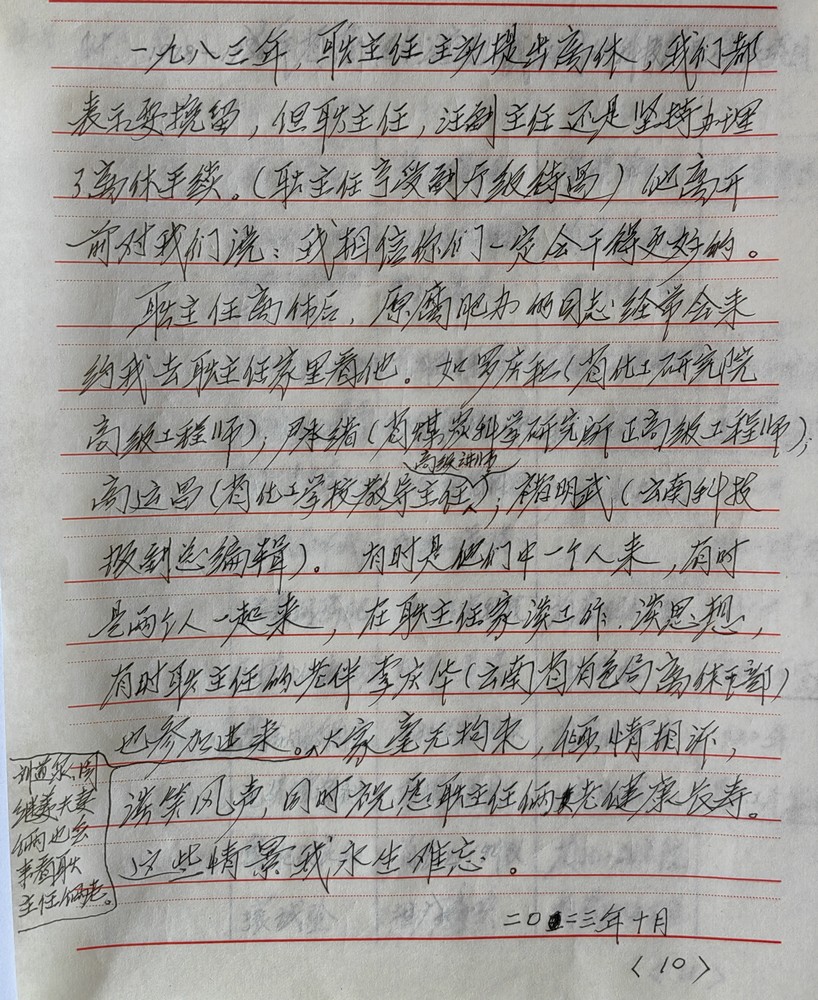 一九八三年，耿主任主动提出离休，我们都
表示要挽留，但耿主任，汪副主任还是坚持办理
了离休手续。（耿主任享受副厅级待遇）他离开
前对我们说：我相信你们一定会干得更好的。
耿主任离休后，原腐肥办的同志经常会来
约我去耿主任家里看他。如罗庆和（省化工研究院
高级工程师），（省煤炭科学研究所正高级工程师）；
高级讲师
高运昌（省化工学校教导主任）；褚明武（云南科技
报副总编辑）。有时是他们中一个人来，有时
是两个人一起来，在耿主任家谈工作．谈思想，
有时耿主任的老伴李庆华（云南省有色局离休干部）
也参加进来。大家毫无拘束，倾情相诉，
谈笑风声，同时祝愿耿主任俩老健康长寿。
这些情景我永生难忘。
继美夫妻
俩也会
来看耿
主任俩老。
二0二三年十月
〈10〉